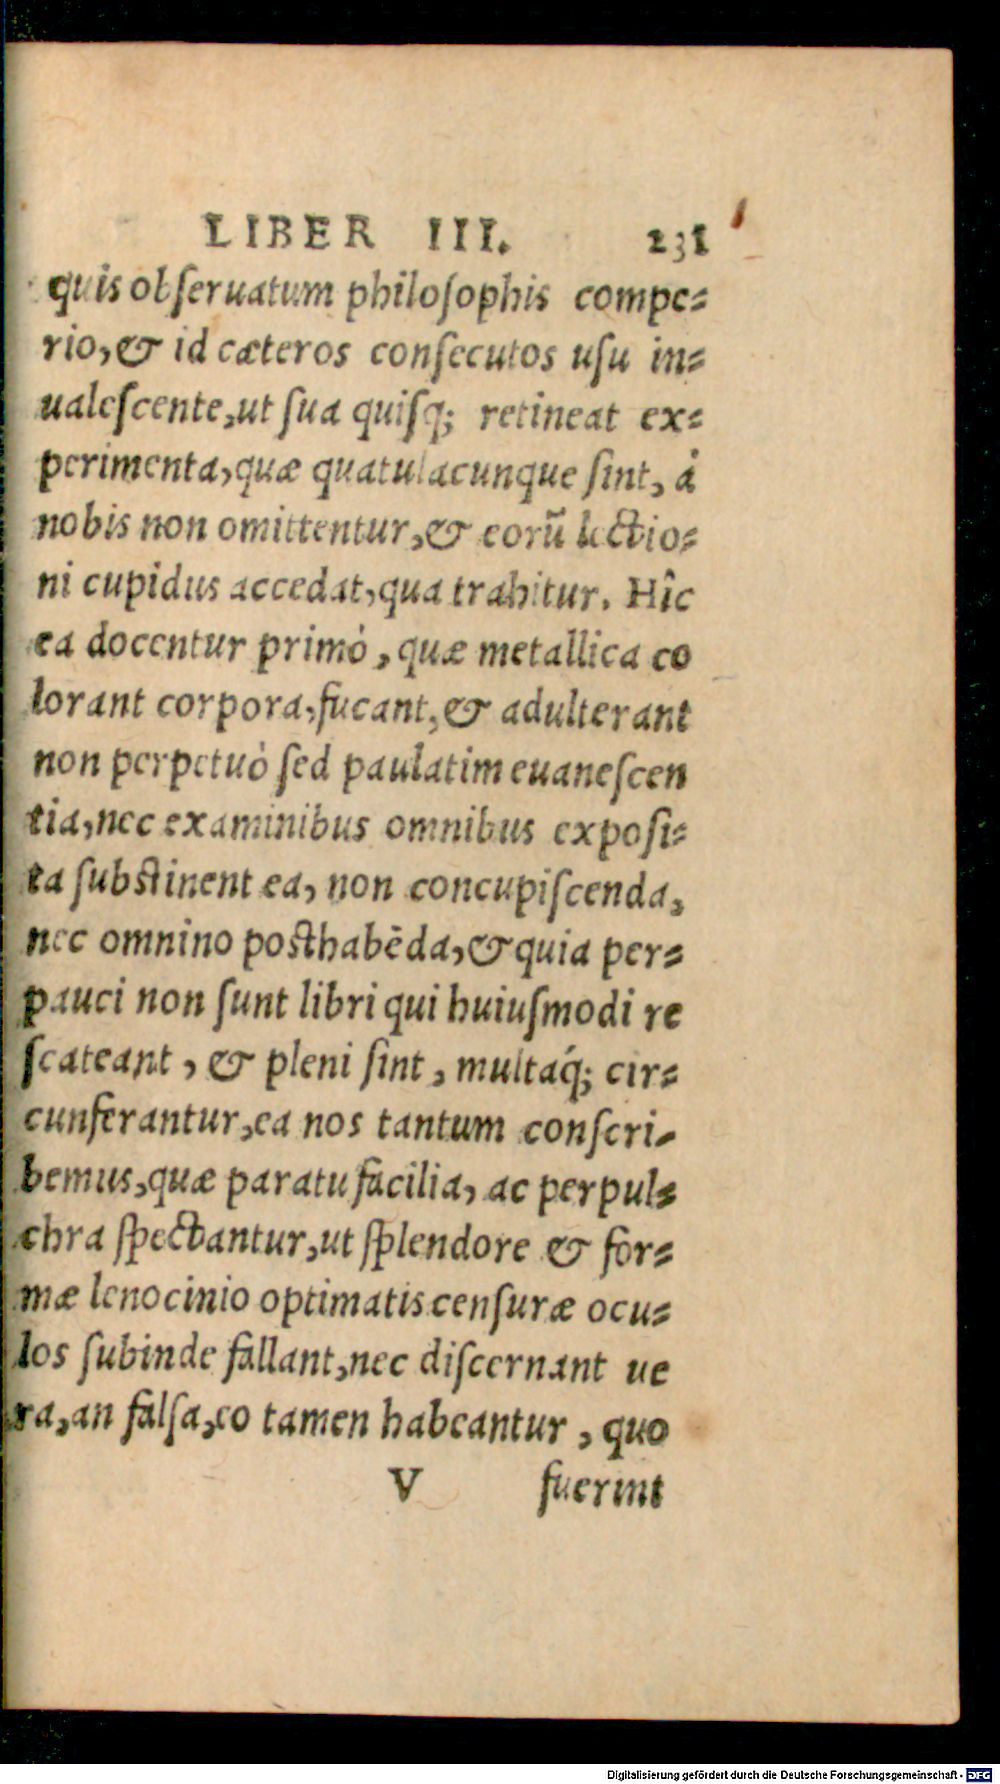 LIBER III. 231
quis obſeruatum philoſophis compe⸗
rio, & id cæteros conſecutos uſu in⸗
ualeſcente, ut ſua quiſq; retineat ex⸗
perimenta, quæ quatulacunque ſint, à
nobis non omittentur, & eorū lectio⸗
ni cupidus accedat, qua trahitur. Hîc
ea docentur primò, quæ metallica co
lorant corpora, fucant, & adulterant
non perpetuò ſed paulatim euaneſcen
tia, nec examinibus omnibus expoſi⸗
ta ſubſtinent ea, non concupiſcenda,
nec omnino poſthabēda, & quia per⸗
pauci non ſunt libri qui huiuſmodi re
ſcateant, & pleni ſint, multaq́; cir⸗
cunferantur, ea nos tantum conſcri⸗
bemus, quæ paratu facilia, ac perpul⸗
chra ſpectantur, ut ſplendore & for⸗
mæ lenocinio optimatis cenſuræ ocu⸗
los ſubinde fallant, nec diſcernant ue
ra, an falſa, eo tamen habeantur, quo
V fuerint
Digitalisierung gefördert durch die Deutsche Forschungsgemeinschaft - DFG